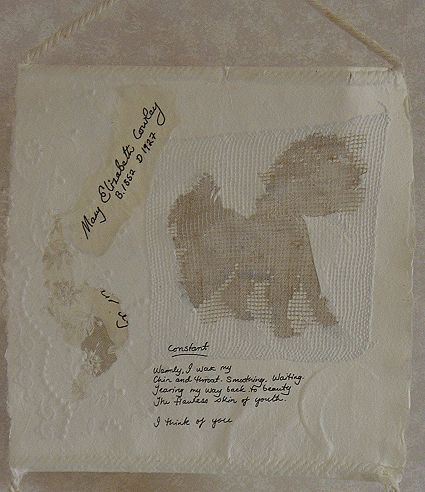 Mary Elizabeth Cowley
B. 1852 D 1927
Constant
Warmly, I wax my
Chin and throat. Smoothing. Waiting.
Tearing my way back to beauty
The flawless skin of youth.
I think of you